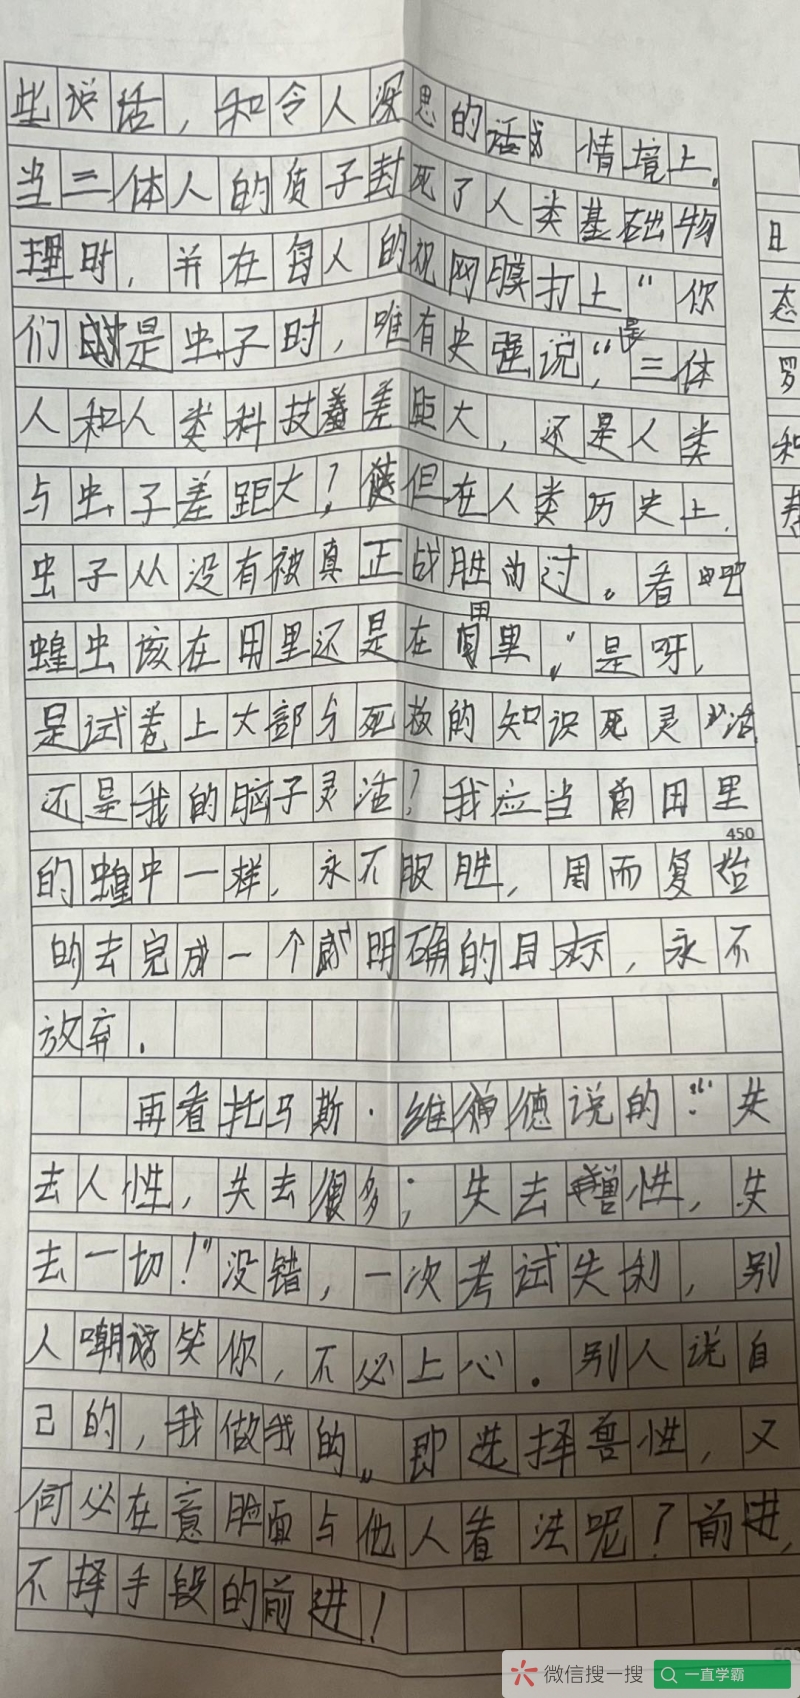 些说话，和令人深思的话或情境上。
当三体人的质子封死了人类基础物
理时，并在每人的视网膜打上“你
们是虫子时，唯有史强说，“是三体
人和人类科技差距大，还是人类
与虫子差距大？但在人类历史上，
虫子从没有被真正战胜过。看吧
蝗虫该在田里还是在田里。”是呀，
是试卷上大部分死板的知识死灵活
还是我的脑子灵活？我应当向田里
的蝗虫一样，永不服胜，周而复始
450
的去完成一个明确的目标，永不
放弃.
再看托马斯·维德说的：“失
去人性，失去很多；失去兽性，失
去一切！”没错，一次考试失利，别
人嘲笑你，不必上心.别人说自
己的，我做我的。即选择兽性，又
何必在意脸面与他人看法呢？前进，
不择手段的前进！
日
态
罗
和
600
微信搜一搜 一直学霸